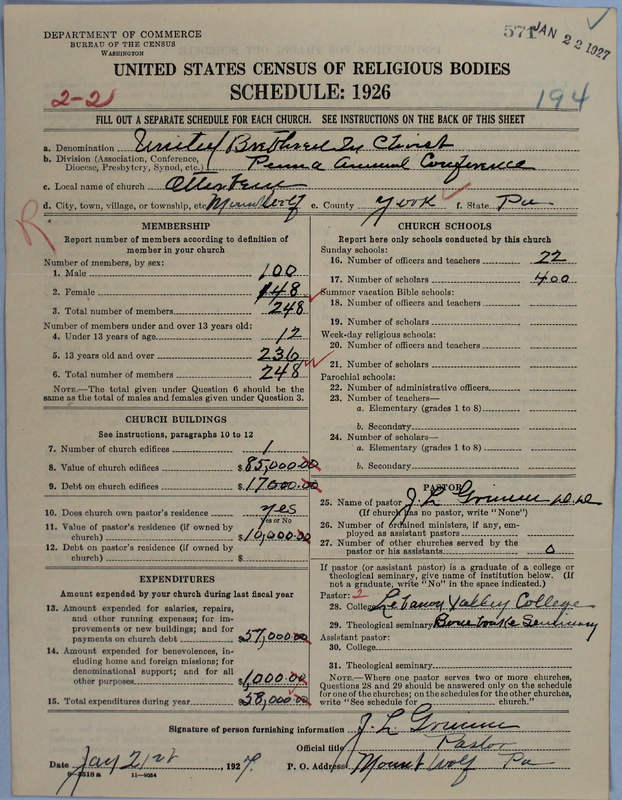 DEPARTMENT OF COMMERCE
BUREAU OF THE CENSUS
WASHINGTON
571 JAN 22 1927
UNITED STATES CENSUS OF RELIGIOUS BODIES
2-2 SCHEDULE: 1926 194
FILL OUT A SEPARATE SCHEDULE FOR EACH CHURCH. SEE INSTRUCTIONS ON THE BACK OF THIS SHEET
a. Denomination United Brethren In Christ
b. Division (Association, Conference, Diocese, Presbytery, Synod, etc.) Penna Annual Conference
c. Local name of church Otterbein
d. City, town, village, or township, etc. Mount Wolf e. County York f. State Pa
R
MEMBERSHIP
Report number of members according to definition of
member in your church
Number of members, by sex:
1. Male 100
2. Female 148
3. Total number of members 248
Number of members under and over 13 years old:
4. Under 13 years of age 12
5. 13 years old and over 236
6. Total number of members 248
NOTE.—The total given under Question 6 should be
same as the total of males and females given under Question 3.
CHURCH BUILDINGS
See instructions, paragraphs 10 to 12
7. Number of church edifices 1
8. Value of church edifices $85,000.00
9. Debt on church edifices $17000.00
10. Does church own pastor's residence yes
Yes or No
11. Value of pastor's residence (if owned by
church) $10,000.00
12. Debt on pastor's residence (if owned by
church) $
EXPENDITURES
Amount expended by your church during last fiscal year
13. Amount expended for salaries, repairs,
and other running expenses; for im-
provements or new buildings; and for
payments on church debt 57,000.00
14. Amount expended for benevolences, in-
cluding home and foreign missions; for
denominational support; and for all
other purposes 1,000.00
15. Total expenditures during year $58,000.00
CHURCH SCHOOLS
Report here only schools conducted by this church
Sunday schools:
16. Number of officers and teachers 22
17. Number of scholars 400
Summer vacation Bible schools:
18. Number of officers and teachers
19. Number of scholars
Week-day religious schools:
20. Number of officers and teachers
21. Number of scholars
Parochial schools:
22. Number of administrative officers
23. Number of teachers—
a. Elementary (grades 1 to 8)
b. Secondary
24. Number of scholars—
a. Elementary (grades 1 to 8)
b. Secondary
PASTOR
25. Name of pastor J. L. Grimm D.D.
(If church has no pastor, write "None")
26. Number of ordained ministers, if any, em-
ployed as assistant pastors
27. Number of other churches served by the
pastor or his assistants 0
If pastor (or assistant pastor) is a graduate of a college or
theological seminary, give name of institution below. (If
not a graduate, write "No" in the space indicated.)
Pastor: 2
28. College Lebanon Valley College
29. Theological seminary Bonebrake Seminary
Assistant pastor:
30. College
31. Theological seminary
NOTE.—Where one pastor serves two or more churches,
Questions 28 and 29 should be answered only on the schedule
for one of the churches; on the schedules for the other churches,
write "See schedule for church."
Signature of person furnishing information J. L. Grimm
Official title Pastor
Date Jan 21st, 1927. P. O. Address Mount Wolf Pa
8-5318a 11-9054